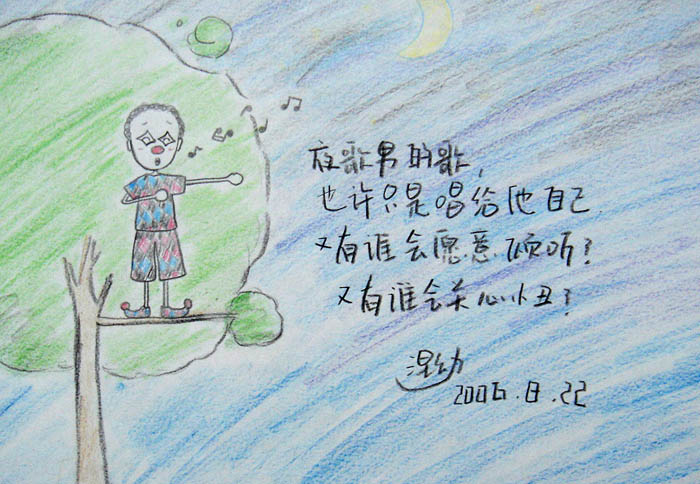 夜歌男的歌,
也许只是唱给他自己.
又有谁会愿意倾听?
又有谁会关心小丑?
2006.8.22